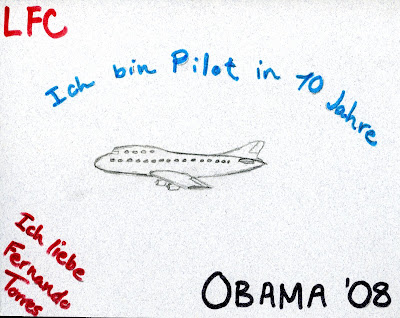 LFC
Ich bin Pilot in 10 Jahre
Ich liebe
Fernando
Torres
OBAMA '08